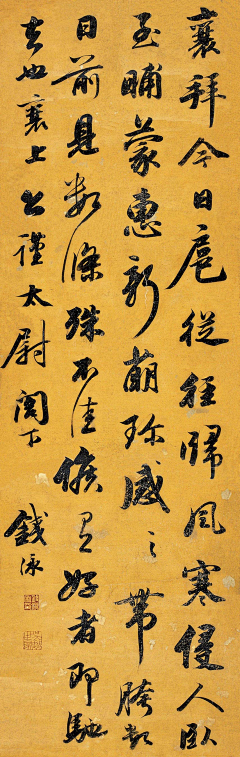 襄拜今日扈從徑歸風寒侵人臥
至晡蒙惠新萌珍感々帶胯數
日前見數條殊不佳候有好者即馳
去也襄上公謹太尉閣下
錢泳